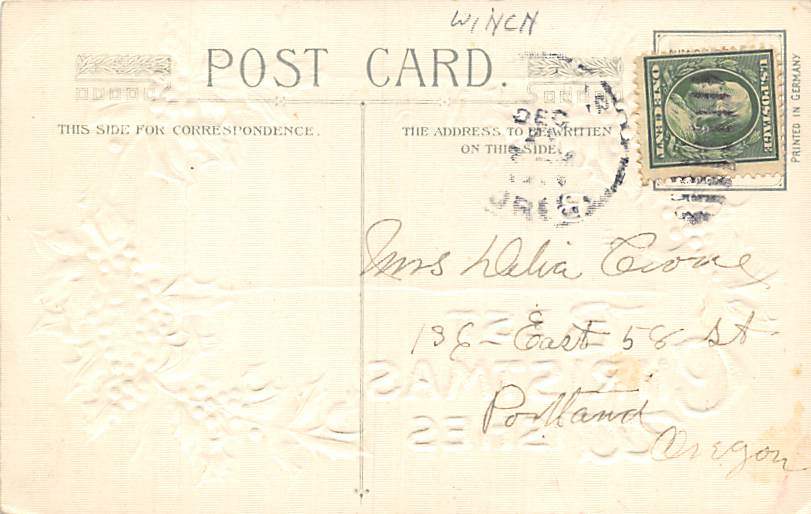 WINCH
POST CARD.
THIS SIDE FOR CORRESPONDENCE.
THE ADDRESS TO BE WRITTEN
ON THIS SIDE.
U.S. POSTAGE
ONE CENT
PRINTED IN GERMANY
DEC
Mrs Delia
136 - East 58 St
Portland
Oregon
BEST
CHRISTMAS
WISHES